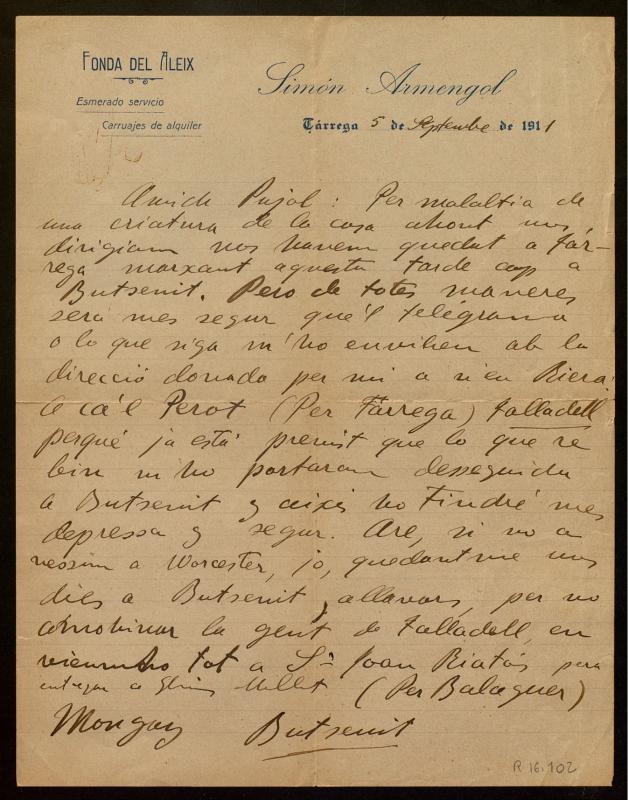 FONDA DEL ALEIX
Esmerado servicio
Carruajes de alquiler
Simón Armengol
Tárrega 5 de Septembre de 1911
Amich Pujol: Per malaltia de
una criatura de la casa ahont nos
dirigiam nos havem quedat a Tár-
rega marxant aquesta tarde cap a
Butsenit. Pero de totes maneres
será mes segur que'l telegrama
o lo que siga m'ho envihen ab la
direcció donada per mi a n'en Riera:
a ca'l Perot (Per Tárrega) Talladell
perqué ja está previst que lo que re
bin m'ho portaran desseguida
a Butsenit y aixís ho tindré mes
depressa y segur. Are, si no a
nessim a Worcester, jo, quedantme uns
dies a Butsenit, allavors, per no
amohinar la gent de Talladell, en
vienmho tot a Sr Joan Riatós pera
entregar a Lluis Millet (Per Balaguer)
Mongay Butsenit
R 16.102